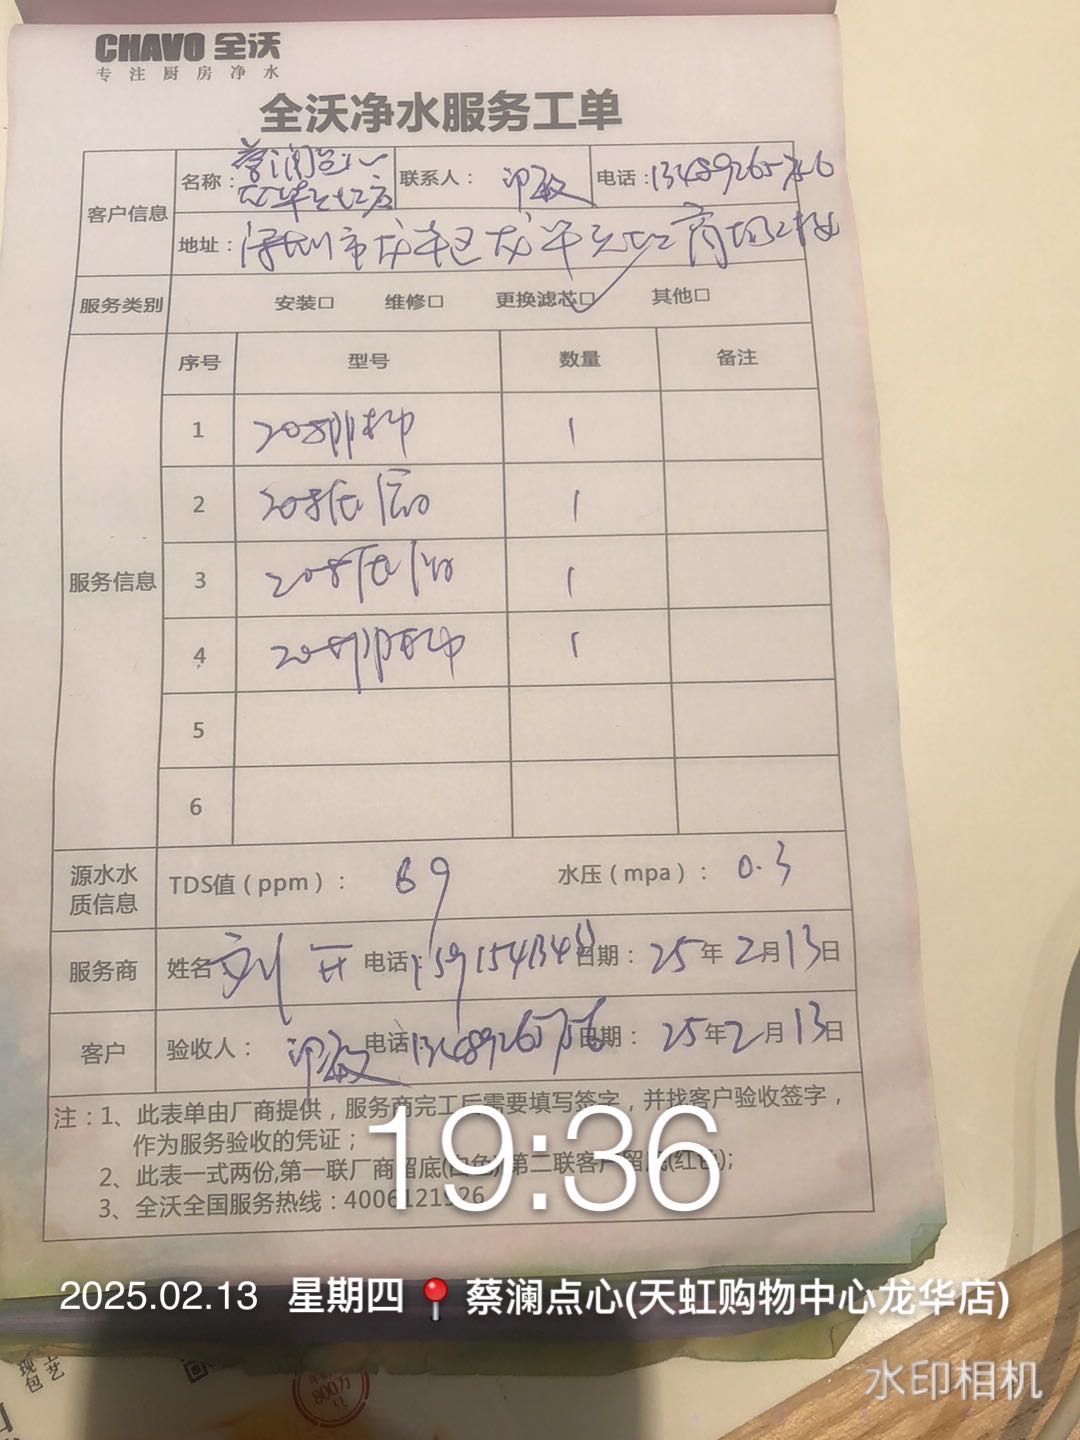 CHAVO 全沃
专注厨房净水
全沃净水服务工单
客户信息 名称： 蔡澜点心 龙华天虹店 联系人： 印敏 电话：
地址：深圳市龙华区龙华天虹商场2楼
服务类别 安装□ 维修□ 更换滤芯□✓ 其他□
服务信息 序号 型号 数量 备注
1 208 1
2 208 1
3 208 1
4 208 1
5
6
源水水质信息 TDS值（ppm）： 69 水压（mpa）： 0.3
服务商 姓名 刘 电话： 日期： 25年2月13日
客户 验收人： 印敏 电话： 日期： 25年2月13日
注：1、此表单由厂商提供，服务商完工后需要填写签字，并找客户验收签字，
作为服务验收的凭证；
2、此表一式两份,第一联厂商留底(白色),第二联客户留底(红色);
3、全沃全国服务热线：4006121926
19:36
2025.02.13 星期四 蔡澜点心(天虹购物中心龙华店)
水印相机
800万